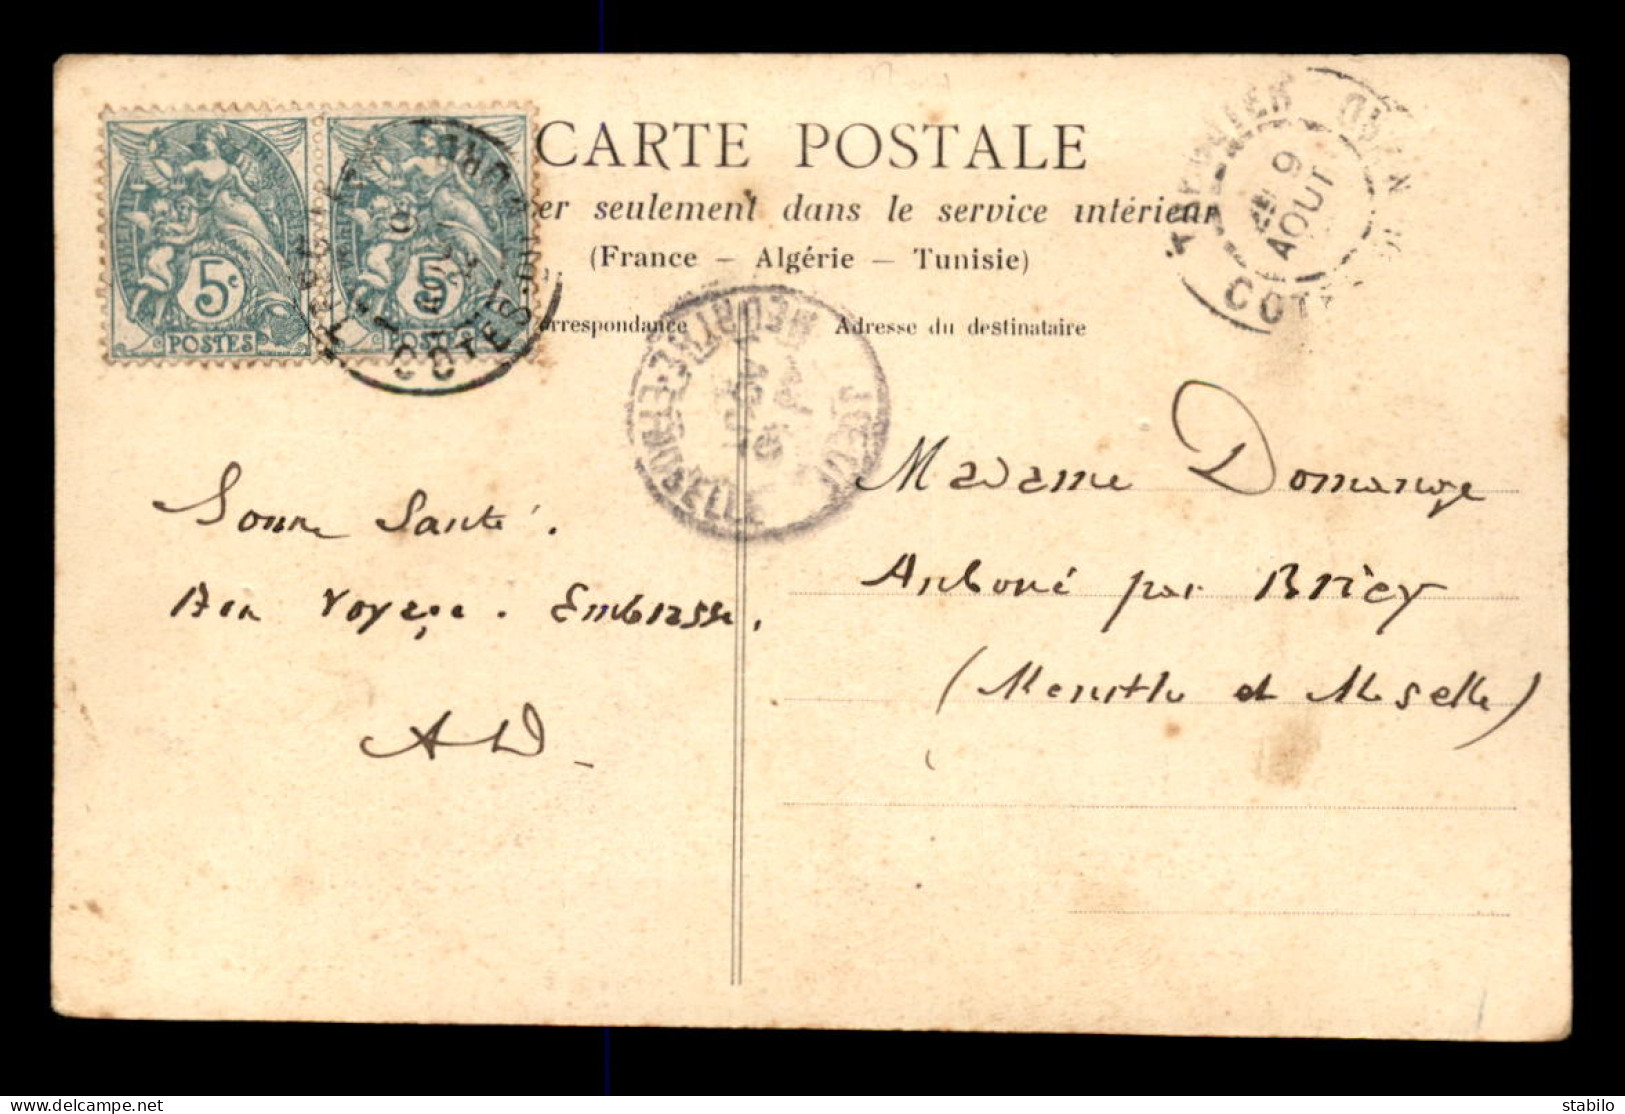 CARTE POSTALE
er seulement dans le service intérieur
(France — Algérie — Tunisie)
orrespondance
Adresse du destinataire
5c
POSTES
5c
POSTES
9
AOUT
Bonne Santé.
Bon Voyage. Embrasse.
AD
Madame Domange
Anboué par Briey
(Meurthe et Moselle)
stabilo